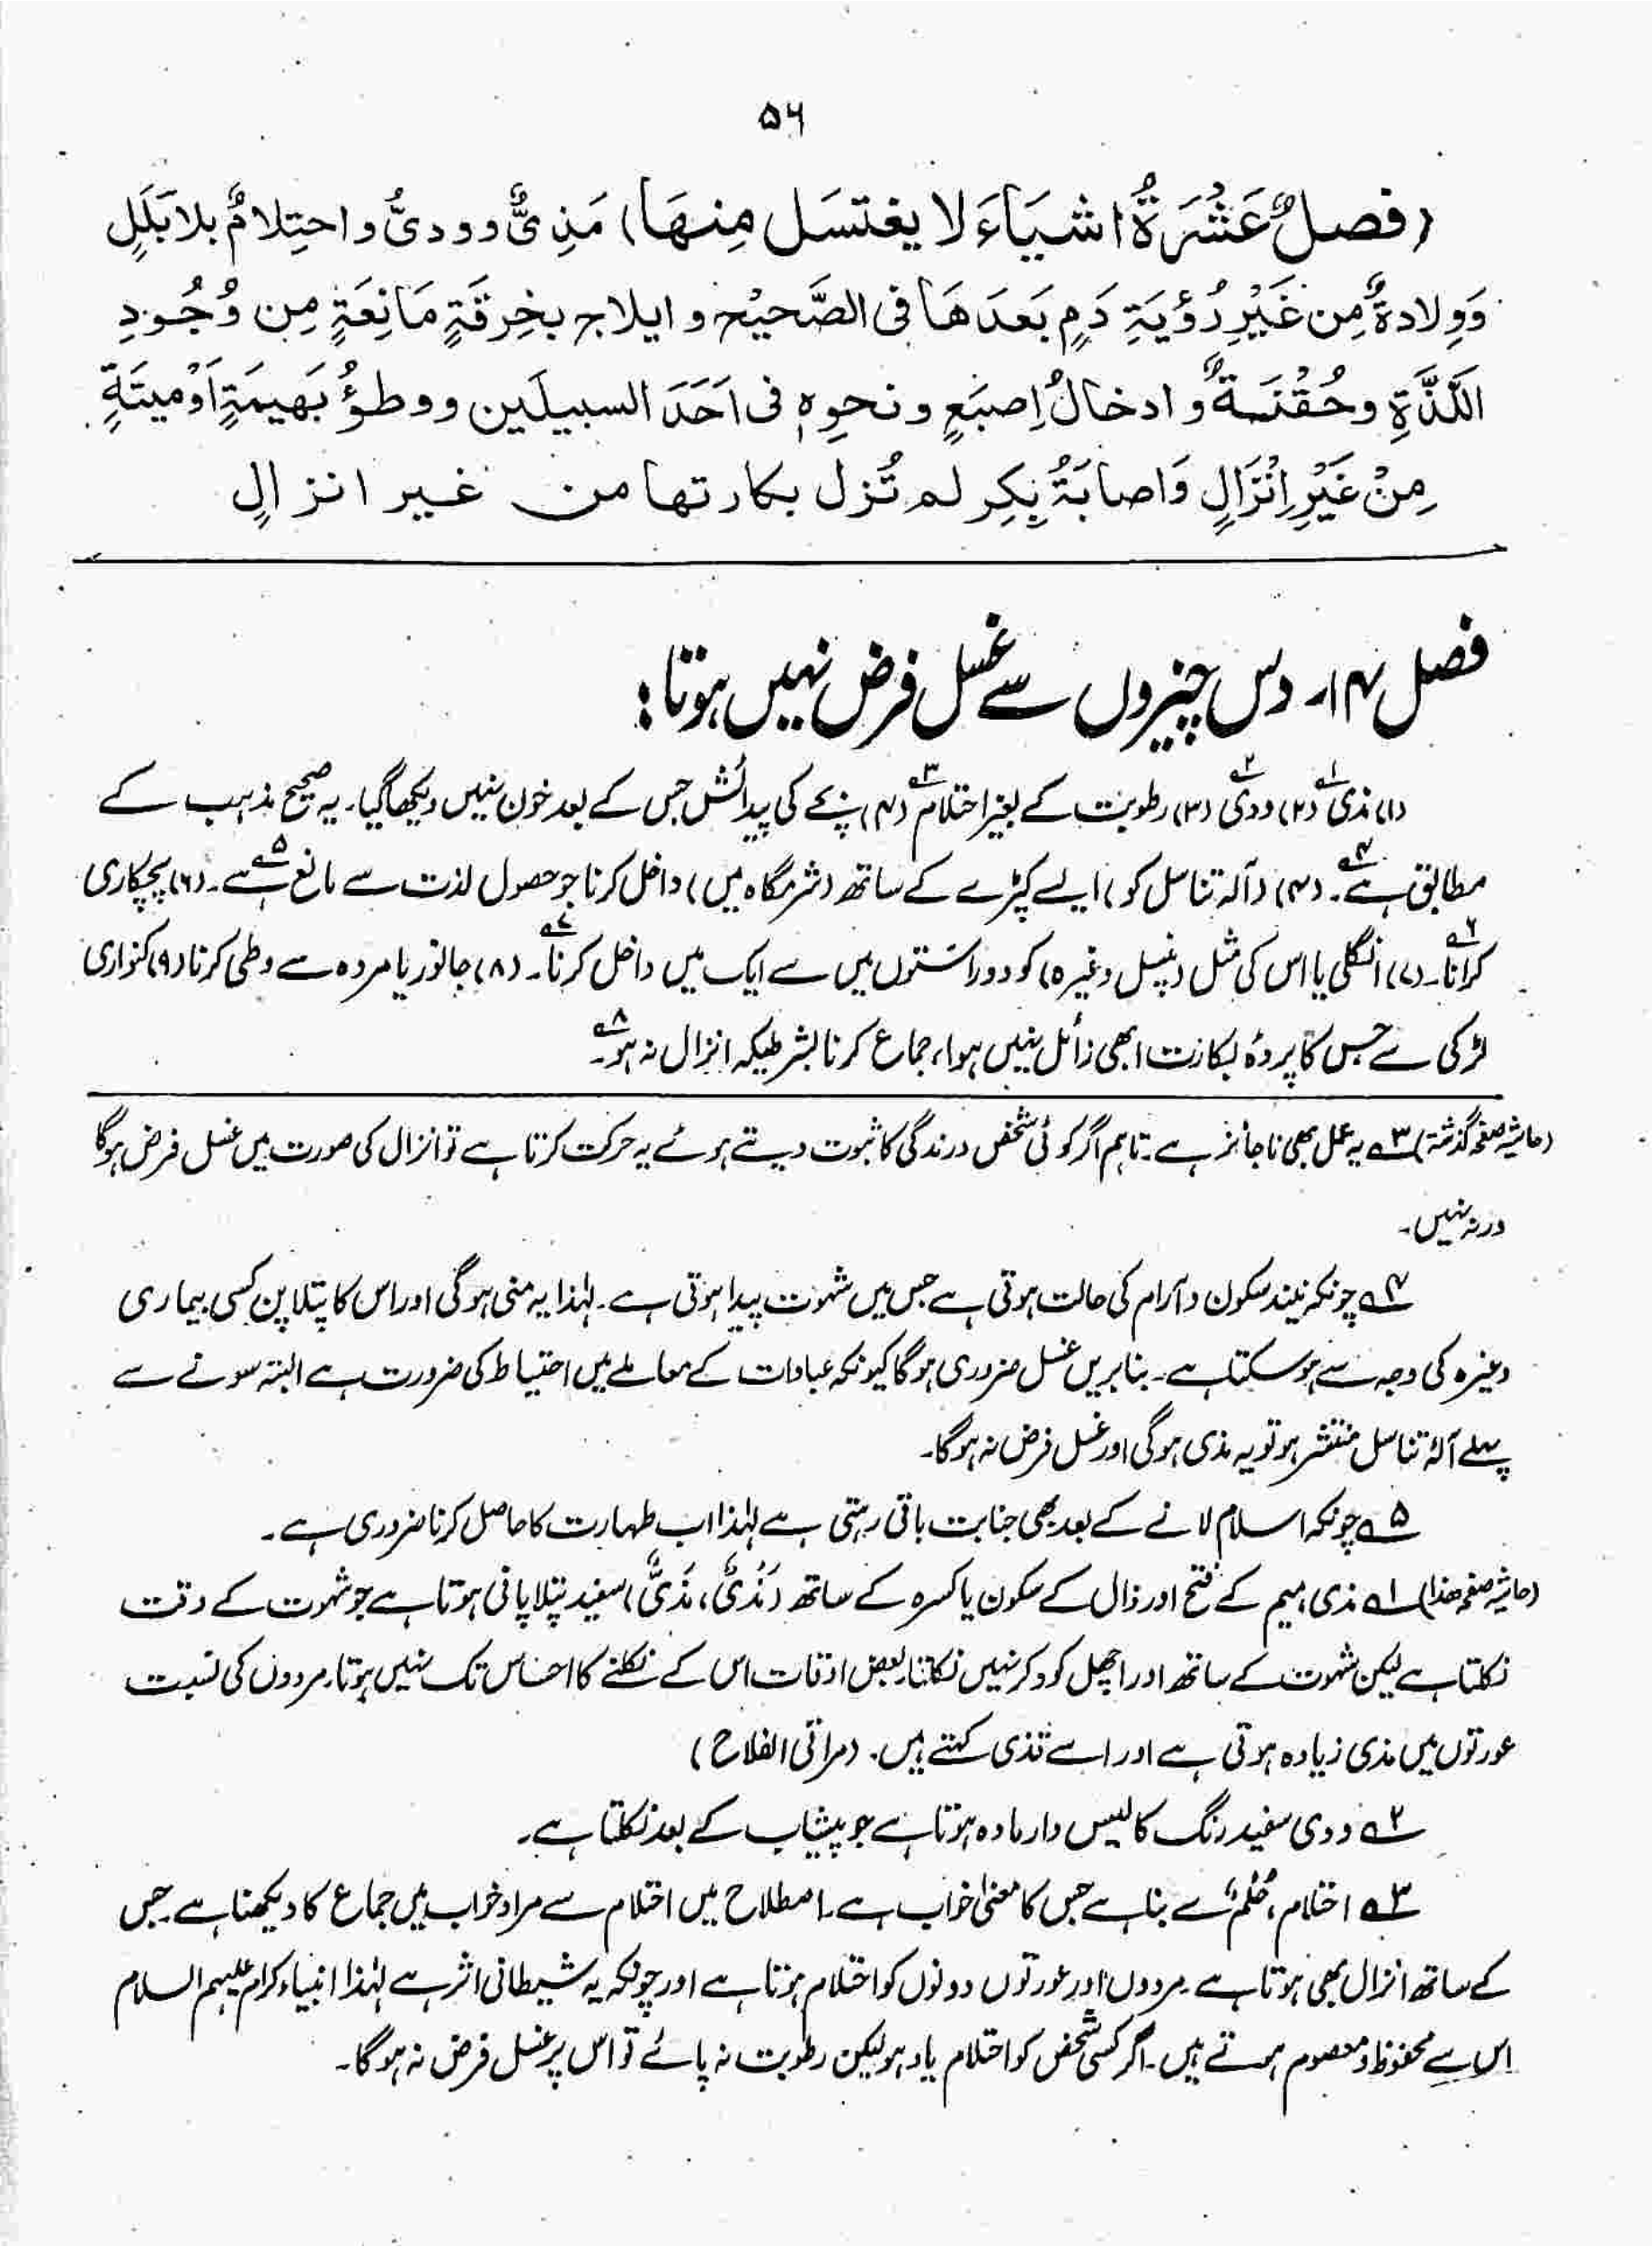 ۵۶
(فصلٌ عَشَرَةُ اشیَاءَ لا یغتسَل مِنهَا) مَذِیٌّ و ودیُّ و احتِلامٌ بلا بَلَلٍ
وَوِلادةٌ مِن غَیْرِ رُؤیَۃِ دَمٍ بَعدَھَا فی الصَّحیْح و ایلاج بخِرقَۃٍ مَانِعَۃٍ مِن وُجُودِ
اللَّذَّۃِ وحُقْنَۃٌ و ادخالُ اِصبَعٍ و نحوِہٖ فی اَحَدَ السبیلَین ووطؤُ بَھیمَۃٍ اَوْمیتَۃٍ
مِنْ غَیْرِ اِنْزَالٍ وَاصابَۃُ بِکرٍ لم تُزل بکارتھا من غیر انزالٍ
فصل ۱۴ر دس چیزوں سے غسل فرض نہیں ہوتا:
(۱) مذی۱ (۲) ودی۲ (۳) رطوبت کے بغیر احتلام۳ (۴) بچے کی پیدائش جس کے بعد خون نہیں دیکھا گیا۔ یہ صحیح مذہب کے
مطابق ہے۴۔ (۴) (آلہ تناسل کو) ایسے کپڑے کے ساتھ (شرمگاہ میں) داخل کرنا جو حصول لذت سے مانع ہے۵۔ (۶) پچکاری
کرانا۶۔ (۷) انگلی یا اس کی مثل (پنسل وغیرہ) کو دو راستوں میں سے ایک میں داخل کرنا۷۔ (۸) جانور یا مردہ سے وطی کرنا (۹) کنواری
لڑکی سے جس کا پردۂ بکارت ابھی زائل نہیں ہوا، جماع کرنا بشرطیکہ انزال نہ ہو۸۔
(حاشیہ صفحہ گذشتہ) ۳ یہ عمل بھی ناجائز ہے۔ تاہم اگر کوئی شخص درندگی کا ثبوت دیتے ہوئے یہ حرکت کرتا ہے تو انزال کی صورت میں غسل فرض ہوگا
ورنہ نہیں۔
۴ چونکہ نیند سکون و آرام کی حالت ہوتی ہے جس میں شہوت پیدا ہوتی ہے۔ لہٰذا یہ منی ہوگی اور اس کا پتلا پن کسی بیماری
وغیرہ کی وجہ سے ہو سکتا ہے۔ بنا بریں غسل ضروری ہوگا کیونکہ عبادات کے معاملے میں احتیاط کی ضرورت ہے البتہ سونے سے
پہلے آلۂ تناسل منتشر ہو تو یہ مذی ہوگی اور غسل فرض نہ ہوگا۔
۵ چونکہ اسلام لانے کے بعد بھی جنابت باقی رہتی ہے لہٰذا اب طہارت کا حاصل کرنا ضروری ہے۔
(حاشیہ صفحہ ھذا) ۱ مذی، میم کے فتح اور ذال کے سکون یا کسرہ کے ساتھ (مَذْیٌ، مَذِیٌّ) سفید پتلا پانی ہوتا ہے جو شہوت کے وقت
نکلتا ہے لیکن شہوت کے ساتھ اور اچھل کود کر نہیں نکلتا۔ بعض اوقات اس کے نکلنے کا احساس تک نہیں ہوتا۔ مردوں کی نسبت
عورتوں میں مذی زیادہ ہوتی ہے اور اسے قذی کہتے ہیں۔ (مراقی الفلاح)
۲ ودی سفید رنگ کا لیس دار مادہ ہوتا ہے جو پیشاب کے بعد نکلتا ہے۔
۳ احتلام، حُلْمٌ سے بنا ہے جس کا معنیٰ خواب ہے۔ اصطلاح میں احتلام سے مراد خواب میں جماع کا دیکھنا ہے۔ جس
کے ساتھ انزال بھی ہوتا ہے۔ مردوں اور عورتوں دونوں کو احتلام ہوتا ہے اور چونکہ یہ شیطانی اثر ہے لہٰذا انبیاء کرام علیہم السلام
اس سے محفوظ و معصوم ہوتے ہیں۔ اگر کسی شخص کو احتلام یاد ہو لیکن رطوبت نہ پائے تو اس پر غسل فرض نہ ہوگا۔